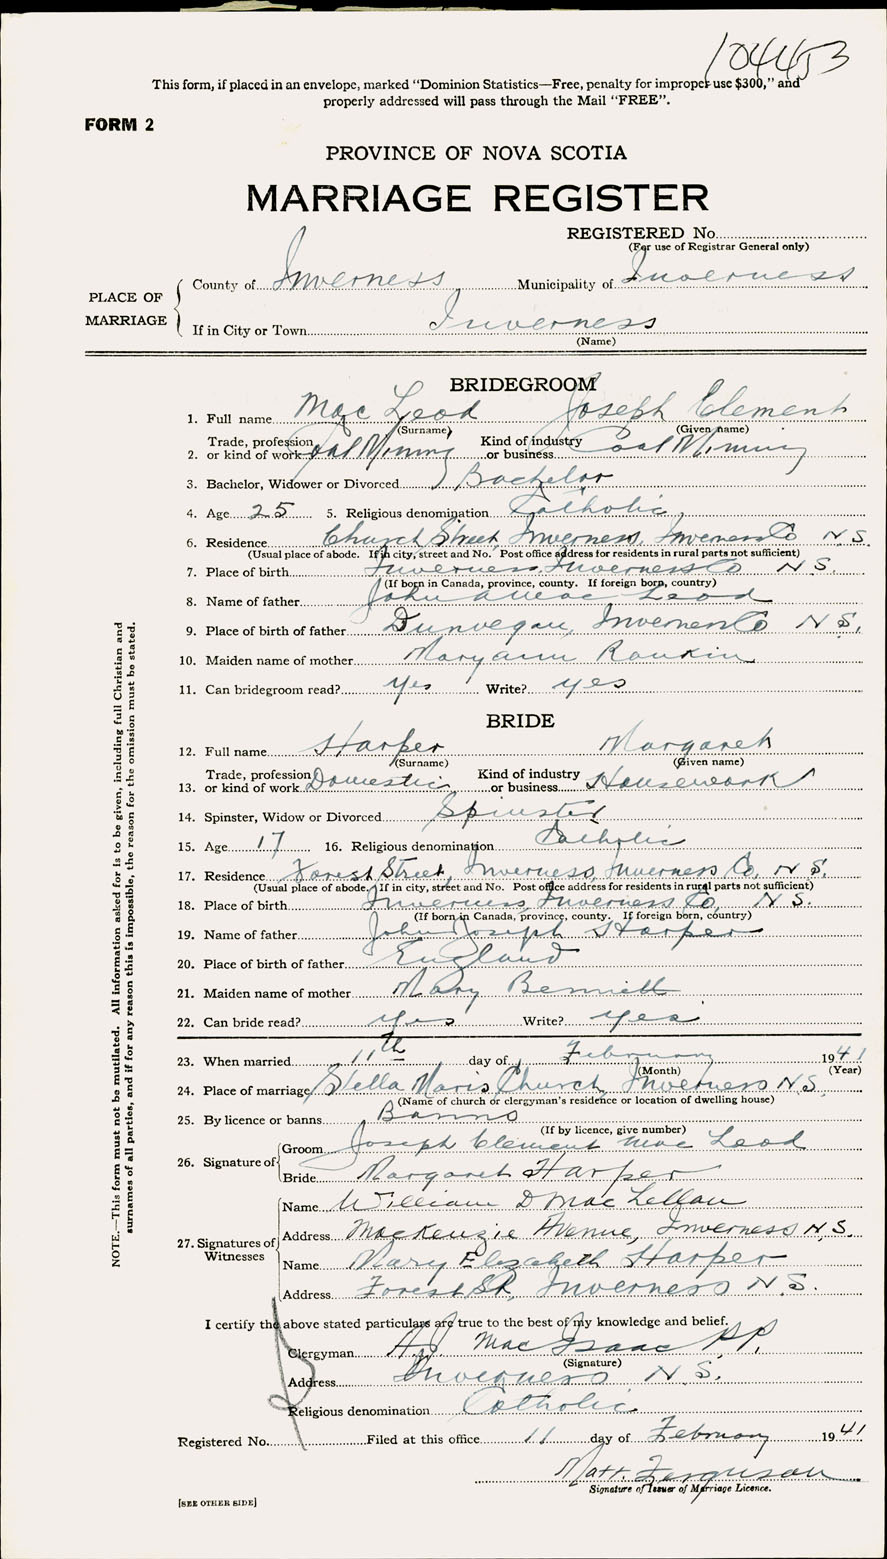 104453
This form, if placed in an envelope, marked "Dominion Statistics—Free, penalty for improper use $300," and
properly addressed will pass through the Mail "FREE".
FORM 2
PROVINCE OF NOVA SCOTIA
MARRIAGE REGISTER
REGISTERED No.
(For use of Registrar General only)
PLACE OF MARRIAGE
County of Inverness Municipality of Inverness
If in City or Town Inverness
(Name)
BRIDEGROOM
1. Full name Mac Leod Joseph Clement
(Surname) (Given name)
2. Trade, profession or kind of work Coal Mining Kind of industry or business Coal Mining
3. Bachelor, Widower or Divorced Bachelor
4. Age 25 5. Religious denomination Catholic
6. Residence Church Street, Inverness, Inverness Co N.S.
(Usual place of abode. If in city, street and No. Post office address for residents in rural parts not sufficient)
7. Place of birth Inverness, Inverness Co N.S.
(If born in Canada, province, county. If foreign born, country)
8. Name of father John A Mac Leod
9. Place of birth of father Dunvegan, Inverness Co N.S.
10. Maiden name of mother Maryann Rankin
11. Can bridegroom read? yes Write? yes
BRIDE
12. Full name Harper Margaret
(Surname) (Given name)
13. Trade, profession or kind of work Domestic Kind of industry or business Housework
14. Spinster, Widow or Divorced Spinster
15. Age 17 16. Religious denomination Catholic
17. Residence Forest Street, Inverness, Inverness Co, N.S.
(Usual place of abode. If in city, street and No. Post office address for residents in rural parts not sufficient)
18. Place of birth Inverness, Inverness Co, N.S.
(If born in Canada, province, county. If foreign born, country)
19. Name of father John Joseph Harper
20. Place of birth of father England
21. Maiden name of mother Mary Bennett
22. Can bride read? yes Write? yes
23. When married 11th day of February 1941
(Month) (Year)
24. Place of marriage Stella Maris Church, Inverness N.S.
(Name of church or clergyman's residence or location of dwelling house)
25. By licence or banns Banns
(If by licence, give number)
26. Signature of Groom Joseph Clement Mac Leod
Bride Margaret Harper
27. Signatures of Witnesses
Name William D Mac Lellan
Address MacKenzie Avenue, Inverness N.S.
Name Mary Elizabeth Harper
Address Forest St, Inverness N.S.
I certify the above stated particulars are true to the best of my knowledge and belief.
Clergyman A.J. Mac Isaac P.P.
(Signature)
Address Inverness N.S.
Religious denomination Catholic
Registered No. Filed at this office 11 day of February 1941
Matt. Ferguson
Signature of Issuer of Marriage Licence.
[SEE OTHER SIDE]
NOTE.—This form must not be mutilated. All information asked for is to be given, including full Christian and
surnames of all parties, and if for any reason this is impossible, the reason for the omission must be stated.